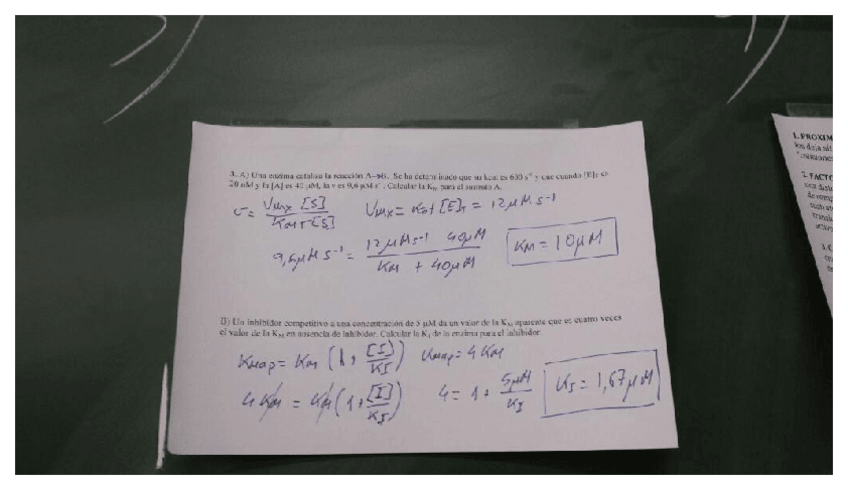 3. A) Una enzima cataliza la reacción A→B. Se ha determinado que su kcat es 600 s⁻¹ y que cuando [E]T es
20 nM y la [A] es 40 µM, la v es 9,6 µM s⁻¹. Calcular la KM para el sustrato A.
v = Vmax [S] / KM + [S] Vmax = Kcat [E]T = 12 µM s-1
9,6 µM s-1 = 12 µM s-1 40 µM / KM + 40 µM KM = 10 µM
B) Un inhibidor competitivo a una concentración de 5 µM da un valor de la KM aparente que es cuatro veces
el valor de la KM en ausencia de inhibidor. Calcular la KI de la enzima para el inhibidor.
KMap = KM (1 + [I] / KI) KMap = 4 KM
4 KM = KM (1 + [I] / KI) 4 = 1 + 5 µM / KI KI = 1,67 µM
1. PROXIM
los deja
2. FACTO